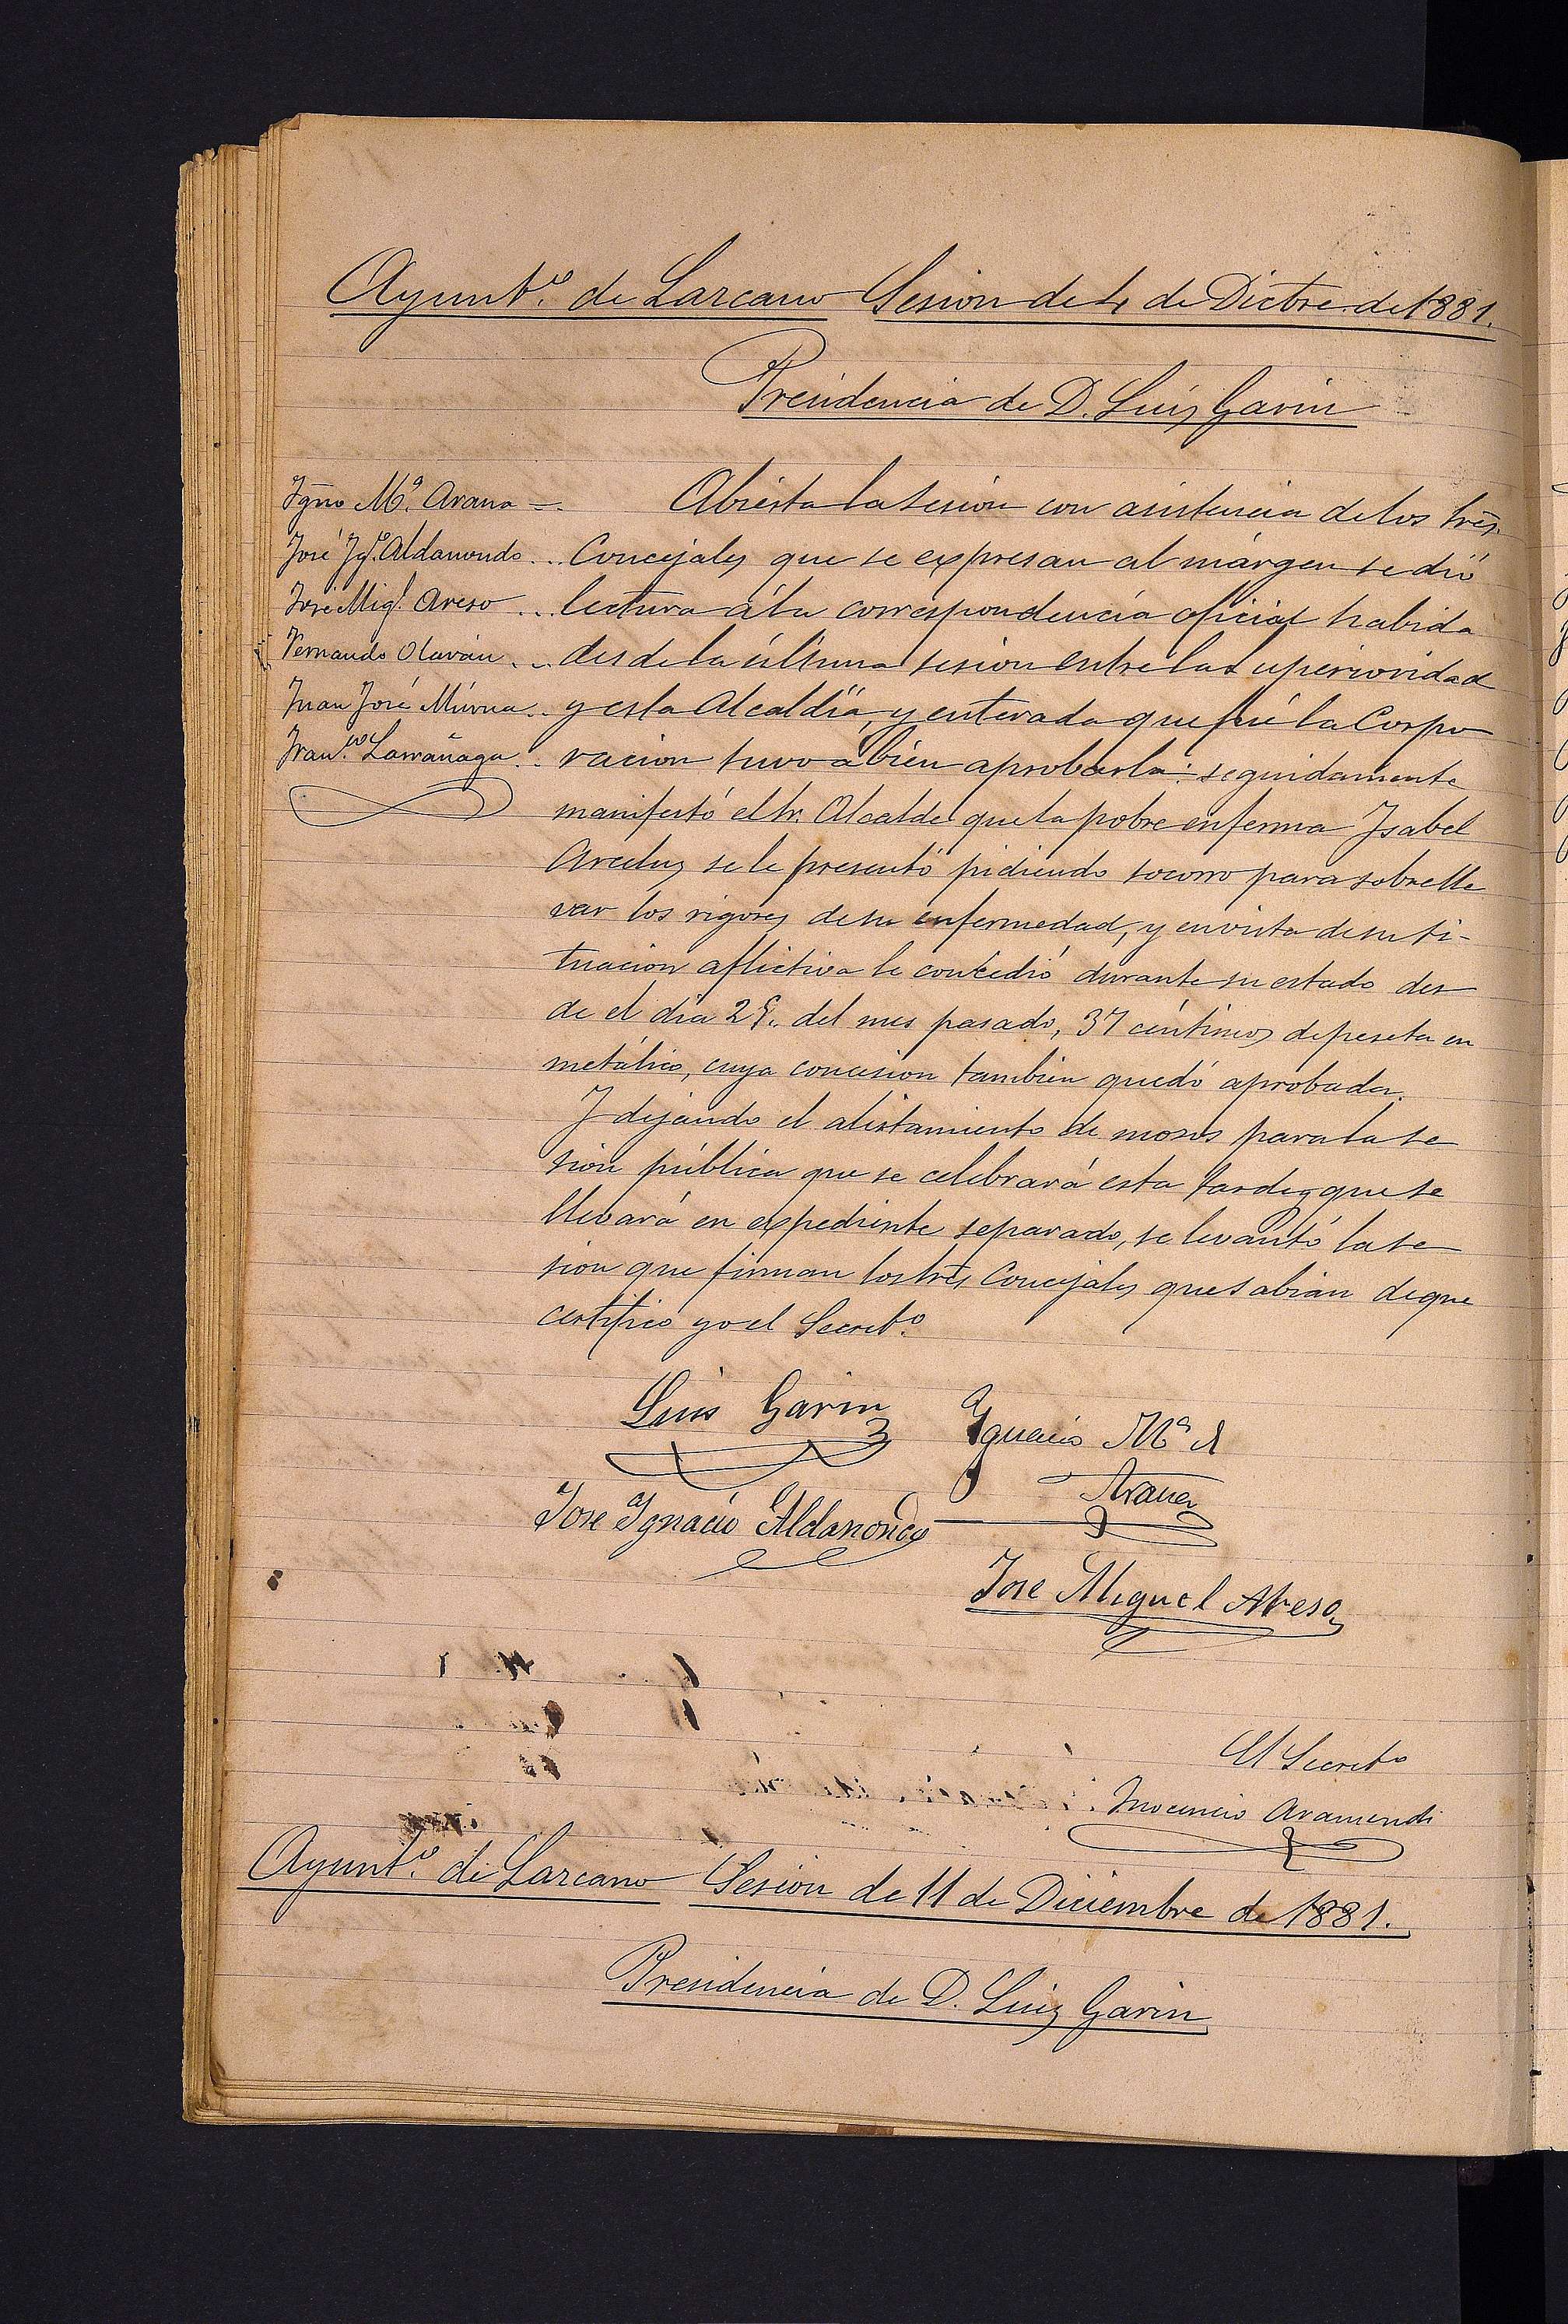 Ayunt.º de Lazcano Sesion de 4 de Dictre. de 1881.
Presidencia de D. Luis Garin
Ygno Mª. Arana =. Abierta la sesión con asistencia de los Sres.
José Ygº. Aldamondo... Concejales que se expresan al márgen se dió
José Migl. Areso... lectura á la correspondencia oficial habida
Fernando Olarán... desde la última sesion entre la Superioridad
Juan José Múrua.. y esta Alcaldía, y enterada que fué la Corpo
Franco. Larrañaga... racion tuvo á bien aprobarla: seguidamente
manifestó el Sr. Alcalde que la pobre enferma Ysabel
Arceluz se le presentó pidiendo socorro para sobrelle
var los rigores de su enfermedad, y en vista de su si-
tuacion aflictiva le concedió durante su estado des
de el dia del mes pasado, 37 céntimos de peseta en
metálico, cuya concesion tambien quedó aprobada.
Y dejando el alistamiento de mozos para la se
sion pública que se celebrará esta tarde y que se
llevará en expediente separado, se levantó la se
sion que firman los Sres Concejales que sabian de que
certifico yo el Secretº.
Luis Garin Ygnacio Mª d
Arana
Jose Ygnacio Aldamondo
Jose Miguel Areso
El Secretº
Inocencio Aramendi
Ayunt.º de Lazcano Sesion de 11 de Diciembre de 1881.
Presidencia de D. Luis Garin